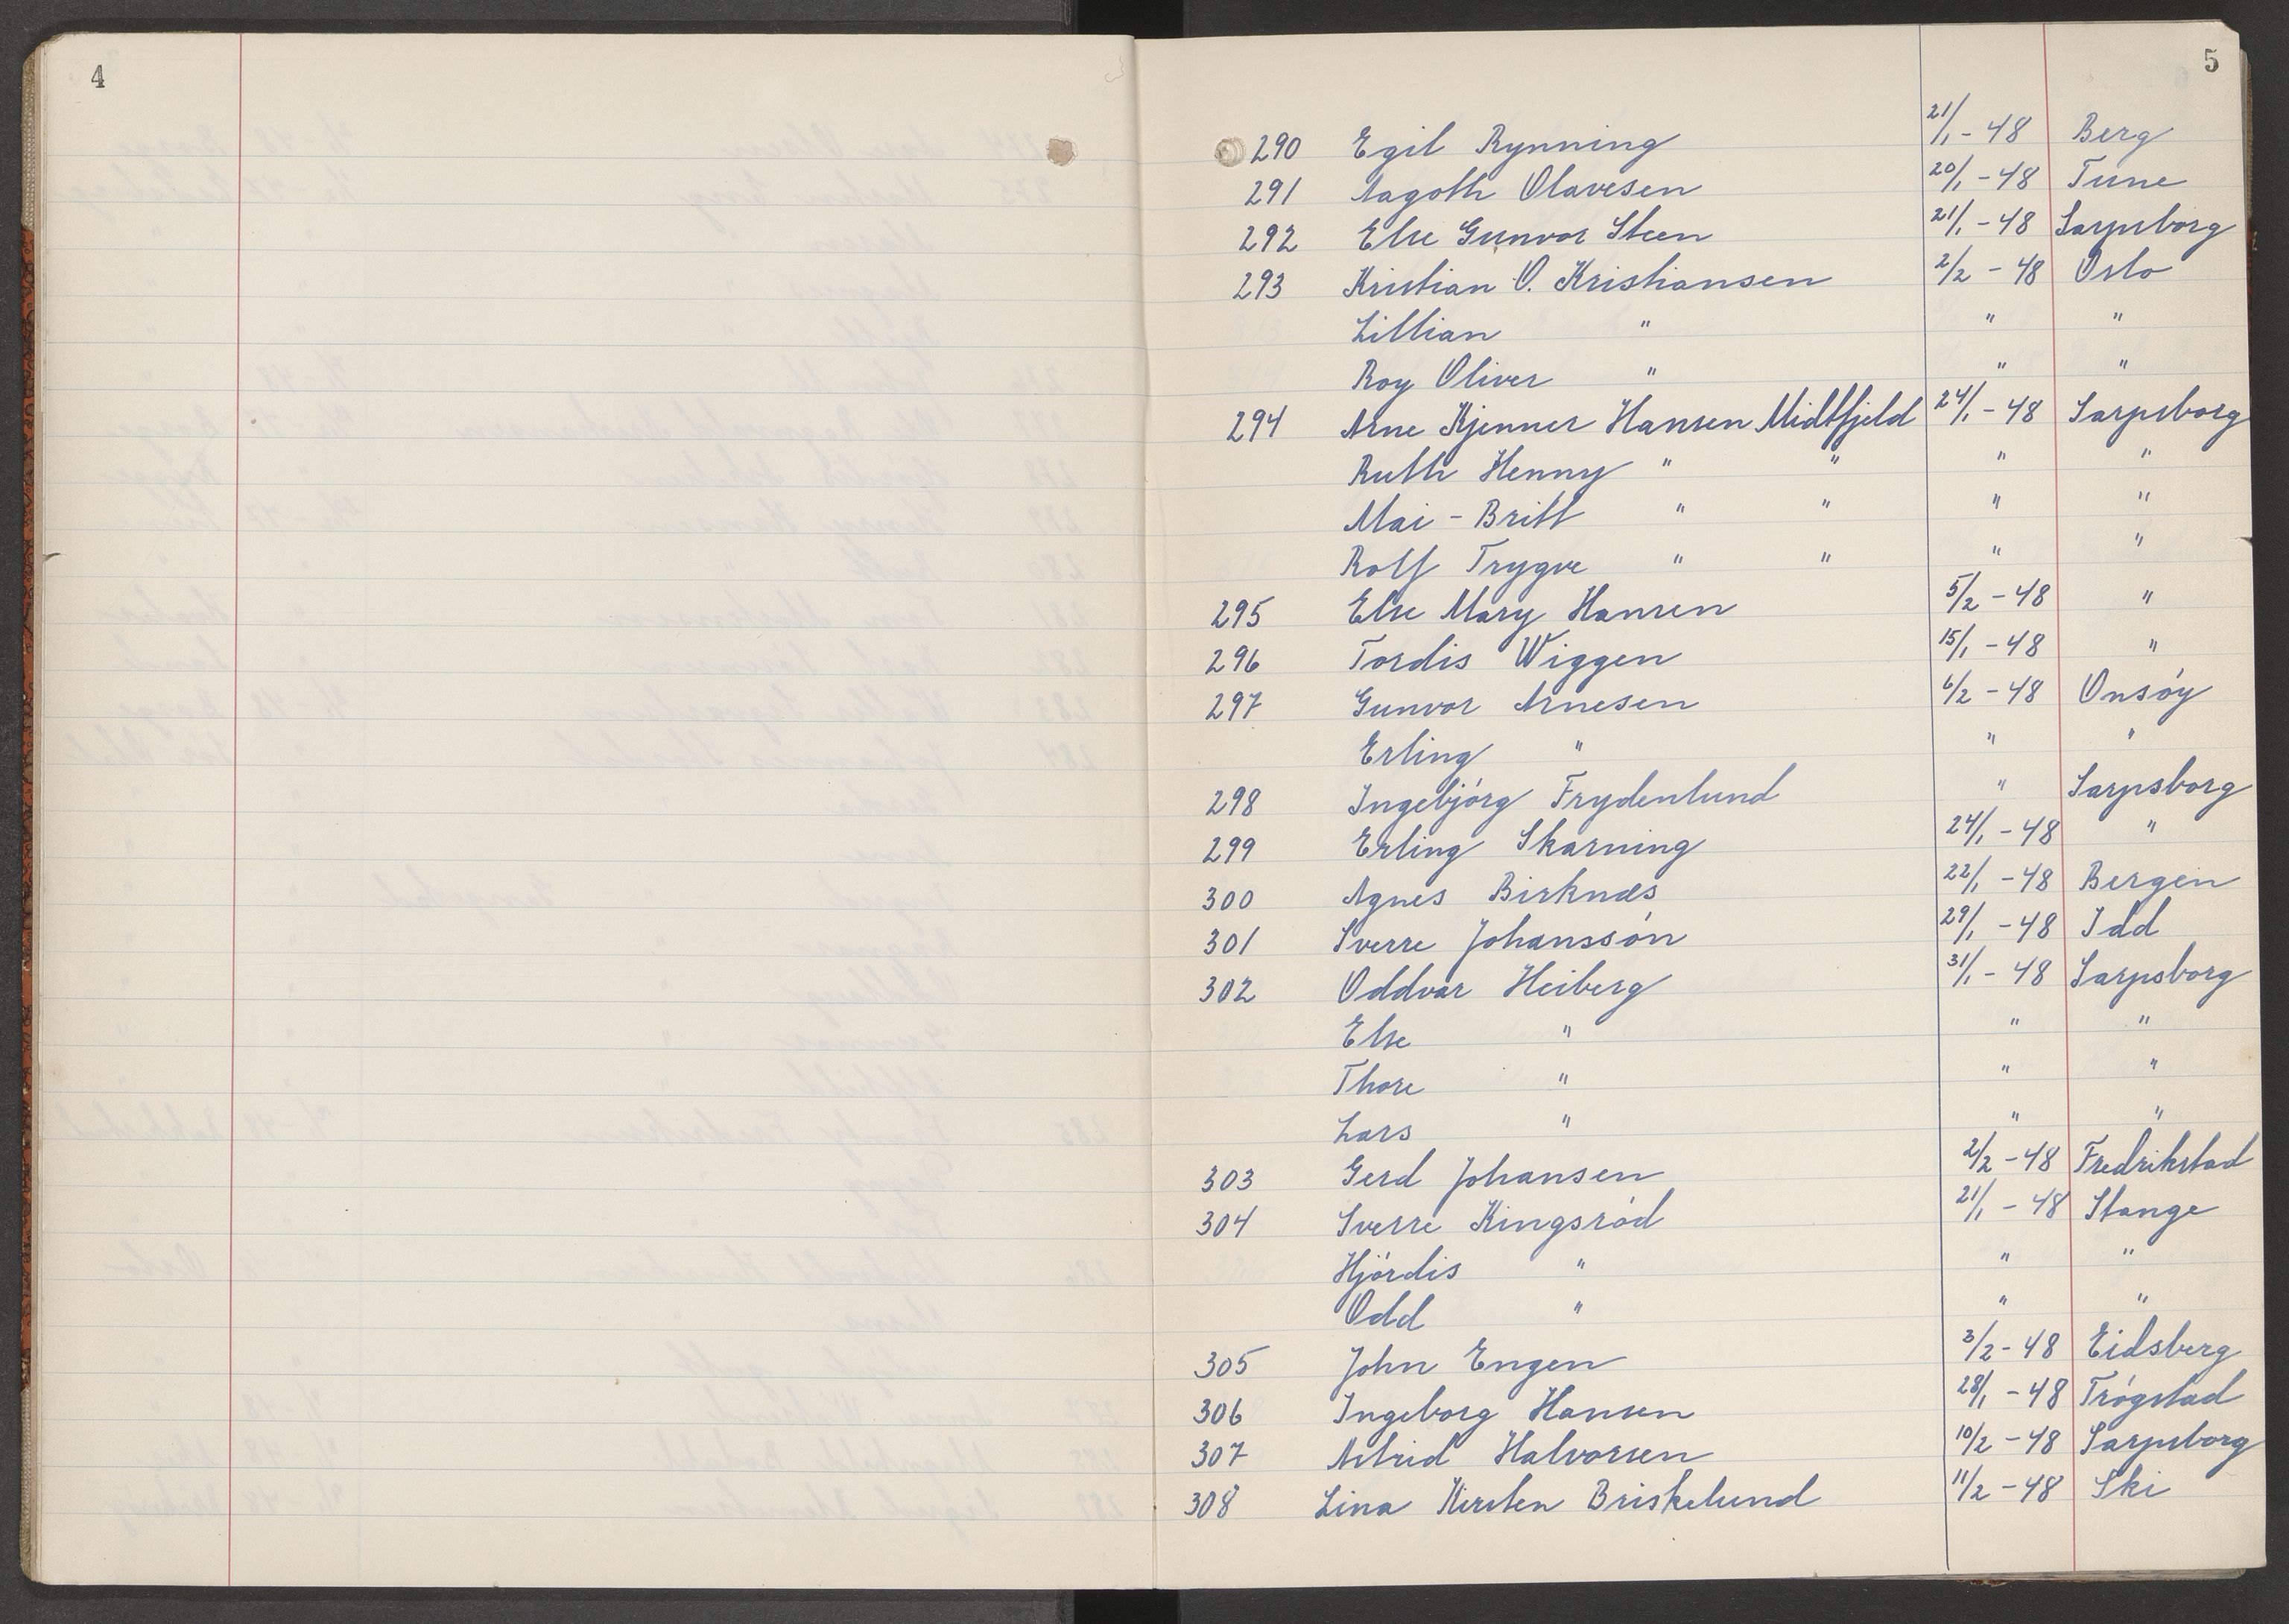 4
5
290 Egil Rynning 21/1 - 48 Berg
291 Aagoth Olavesen 20/1 - 48 Tune
292 Else Gunvor Steen 21/1 - 48 Sarpsborg
293 Kristian O. Kristiansen 2/2 - 48 Oslo
Lillian " " "
Roy Oliver " " "
294 Arne Kjenner Hansen Midtfjeld 24/1 - 48 Sarpsborg
Ruth Henny " " " "
Mai - Britt " " " "
Rolf Trygve " " " "
295 Else Mary Hansen 5/2 - 48 "
296 Tordis Wiggen 15/1 - 48 "
297 Gunvor Arnesen 6/2 - 48 Onsøy
Erling " " "
298 Ingebjørg Frydenlund " Sarpsborg
299 Erling Skarning 24/1 - 48 "
300 Agnes Birknæs 22/1 - 48 Bergen
301 Sverre Johanssøn 29/1 - 48 Idd
302 Oddvar Heiberg 31/1 - 48 Sarpsborg
Else " " "
Thore " " "
Lars " " "
303 Gerd Johansen 2/2 - 48 Fredrikstad
304 Sverre Kingsrød 21/1 - 48 Stange
Hjørdis " " "
Odd " " "
305 John Engen 3/2 - 48 Eidsberg
306 Ingeborg Hansen 28/1 - 48 Trøgstad
307 Astrid Halvorsen 10/2 - 48 Sarpsborg
308 Lina Kirsten Briskelund 11/2 - 48 Ski